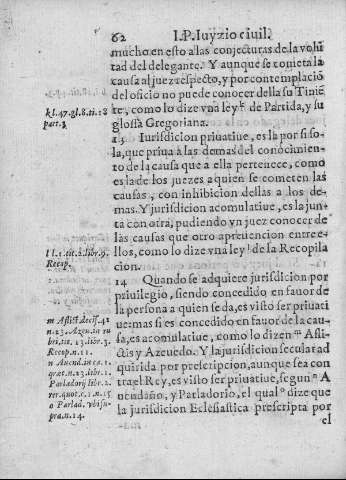 62 I. P. Iuyzio ciuil.
mucho en esto a las conjecturas de la volũ
tad del delegante. Y aunque se cometa la
causa al juez respecto, y por contemplació
del oficio no puede conocer della su Tiniẽ
te, como lo dize vna ley k de Partida, y su
glossa Gregoriana.
13 Iurisdicion priuatiue, es la por si so-
la, que priua à las demas del conocimien-
to de la causa que a ella pertenece, como
es la de los juezes a quien se cometen las
causas, con inhibicion dellas a los de-
mas. Y jurisdicion acomulatiue, es la jun-
ta con otra, pudiendo vn juez conocer de
las causas que otro a preuencion entre-
llos, como lo dize vna ley l de la Recopila
cion.
14 Quando se adquiere jurisdicion por
priuilegio, siendo concedido en fauor de
la persona a quien se da, es visto ser priuati
ue: mas si es concedido en fauor de la cau-
sa, es acomulatiue, como lo dizen m Afli-
ctis y Azeuedo. Y la jurisdicion secular ad
quirida por prescripcion, aunque sea con
tra el Rey, es visto ser priuatiue, segun n A
uendaño, y Parladorio, el qual o dize que
la jurisdicion Eclesiastica prescripta por
el
k l. 47. gl. 8. ti. 18
part. 3
l l. 1. tit. 1. libr. 9.
Recop.
m Aflict. decis. 42
n. 13. Azeu. in ru
bri. tit. 13. libr. 3.
Recop. n. 11.
n Auend. in ca. 1.
præt. n. 23. libr. 1.
Parladorij libr. 2.
rer. quot. c. 1. n. 15
o Parlad. vbi su-
pra. n. 14.